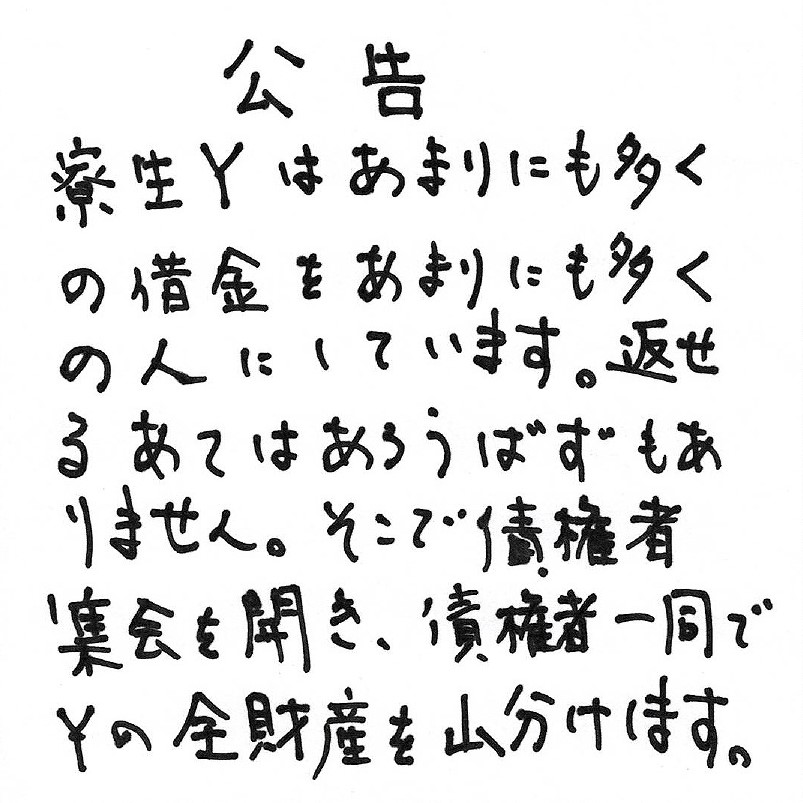 公告
寮生Yはあまりにも多く
の借金をあまりにも多く
の人にしています。返せ
るあてはあろうばずもあ
りません。そこで債権者
集会を開き、債権者一同で
Yの全財産を山分けます。